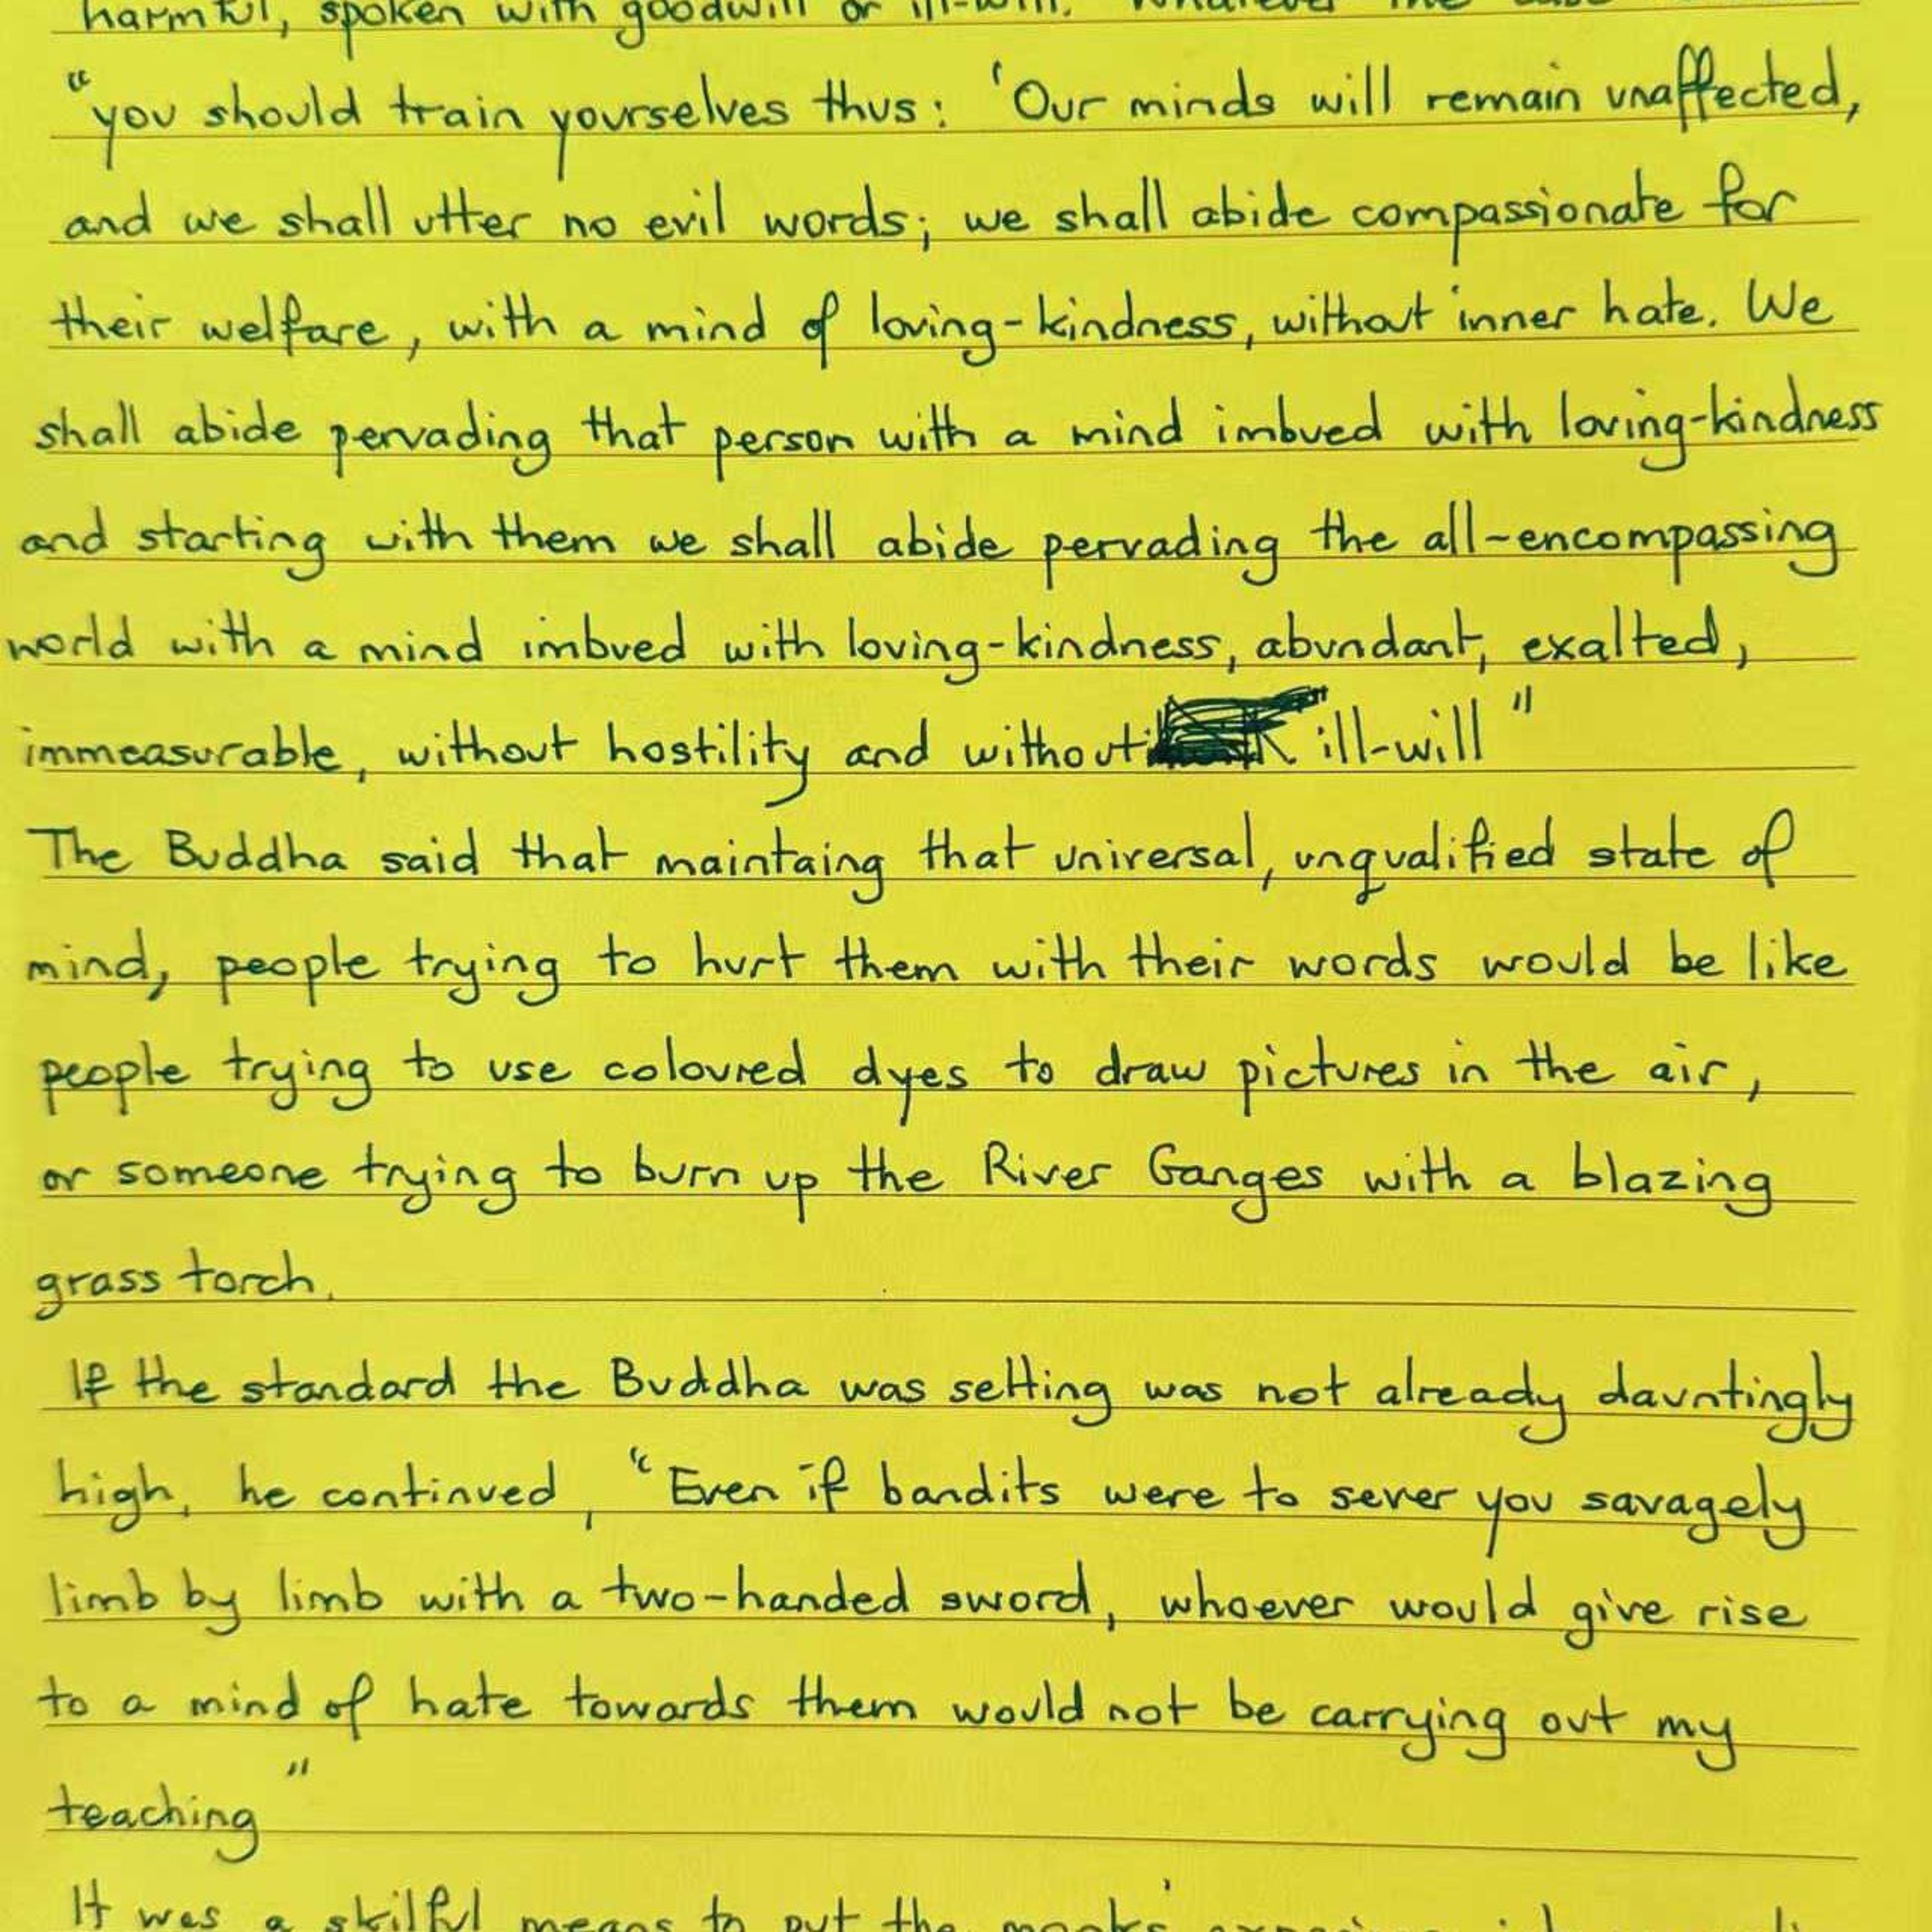 harmful, spoken with goodwill or ill-will. Whatever the case
"you should train yourselves thus: 'Our minds will remain unaffected,
and we shall utter no evil words; we shall abide compassionate for
their welfare, with a mind of loving-kindness, without inner hate. We
shall abide pervading that person with a mind imbued with loving-kindness
and starting with them we shall abide pervading the all-encompassing
world with a mind imbued with loving-kindness, abundant, exalted,
immeasurable, without hostility and without ill-will"
The Buddha said that maintaing that universal, unqualified state of
mind, people trying to hurt them with their words would be like
people trying to use coloured dyes to draw pictures in the air,
or someone trying to burn up the River Ganges with a blazing
grass torch.
If the standard the Buddha was setting was not already dauntingly
high, he continued, "Even if bandits were to sever you savagely
limb by limb with a two-handed sword, whoever would give rise
to a mind of hate towards them would not be carrying out my
teaching"
It was a skilful means to put the monks'